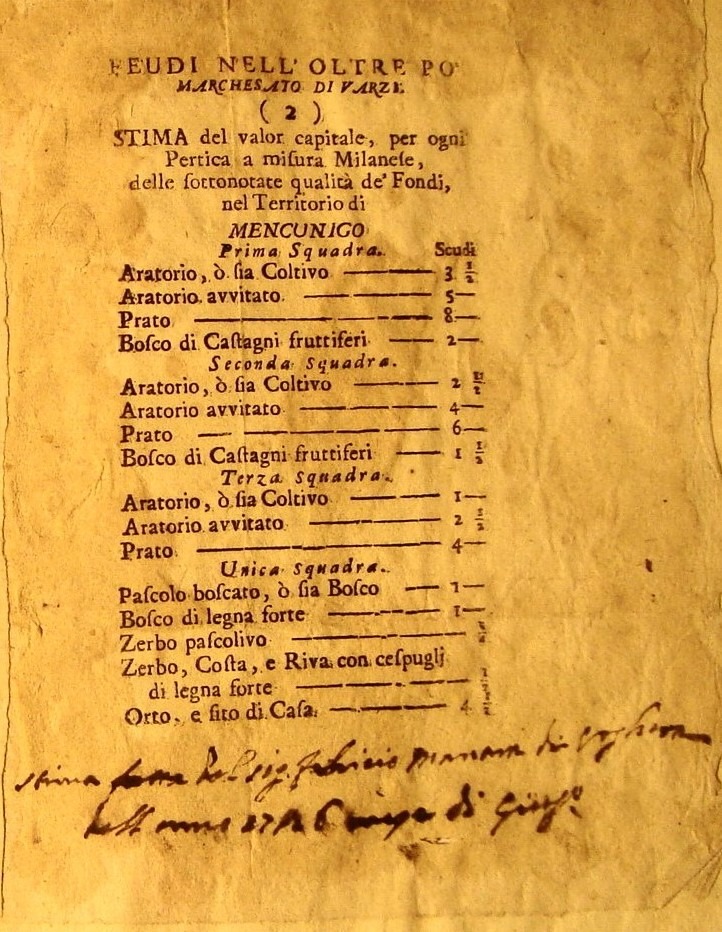 FEUDI NELL' OLTRE PO'
MARCHESATO DI VARZI.
( 2 )
STIMA del valor capitale, per ogni
Pertica a miſura Milaneſe,
delle ſottonotate qualità de' Fondi,
nel Territorio di
MENCUNICO
Prima Squadra. Scudi
Aratorio, ò ſia Coltivo —— 3 ½
Aratorio avvitato —— 5 —
Prato —— 8 —
Boſco di Caſtagni fruttiferi —— 2 —
Seconda Squadra.
Aratorio, ò ſia Coltivo —— 2 ½
Aratorio avvitato —— 4 —
Prato —— 6 —
Boſco di Caſtagni fruttiferi —— 1 ½
Terza Squadra.
Aratorio, ò ſia Coltivo —— 1 —
Aratorio avvitato —— 2 ½
Prato —— 4 —
Unica Squadra.
Paſcolo boſcato, ò ſia Boſco —— 1 —
Boſco di legna forte —— 1 —
Zerbo paſcolivo ——
Zerbo, Coſta, e Riva con ceſpuglj
di legna forte ——
Orto, e ſito di Caſa —— 4 ½
stima fatta del sig. fabricio di
nell anno di